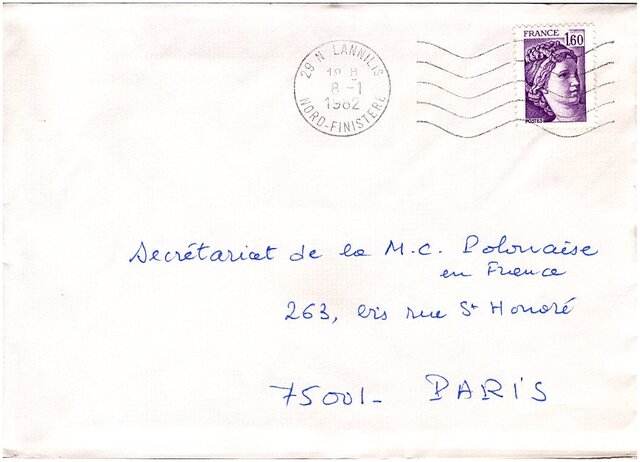 29 N LANNILIS
18 H
8 - 1
1982
NORD-FINISTERE
FRANCE
1,60
Secrétariat de la M.C. Polonaise
en France
263, bis rue St Honoré
75001- PARIS